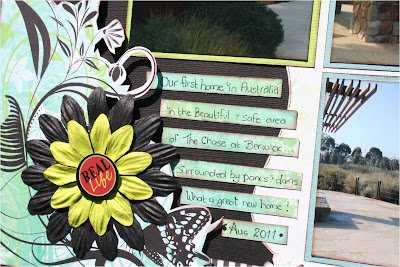 REAL
life
Our first home in Australia
in the Beautiful & safe area
of The Chase at Berwick...
Surrounded by parks & dams
What a great new home!
Aug 2011